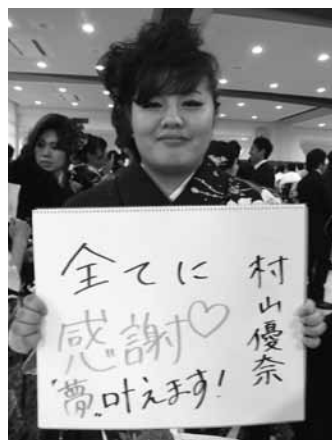 全てに
感謝♡
"夢"叶えます!
村山優奈